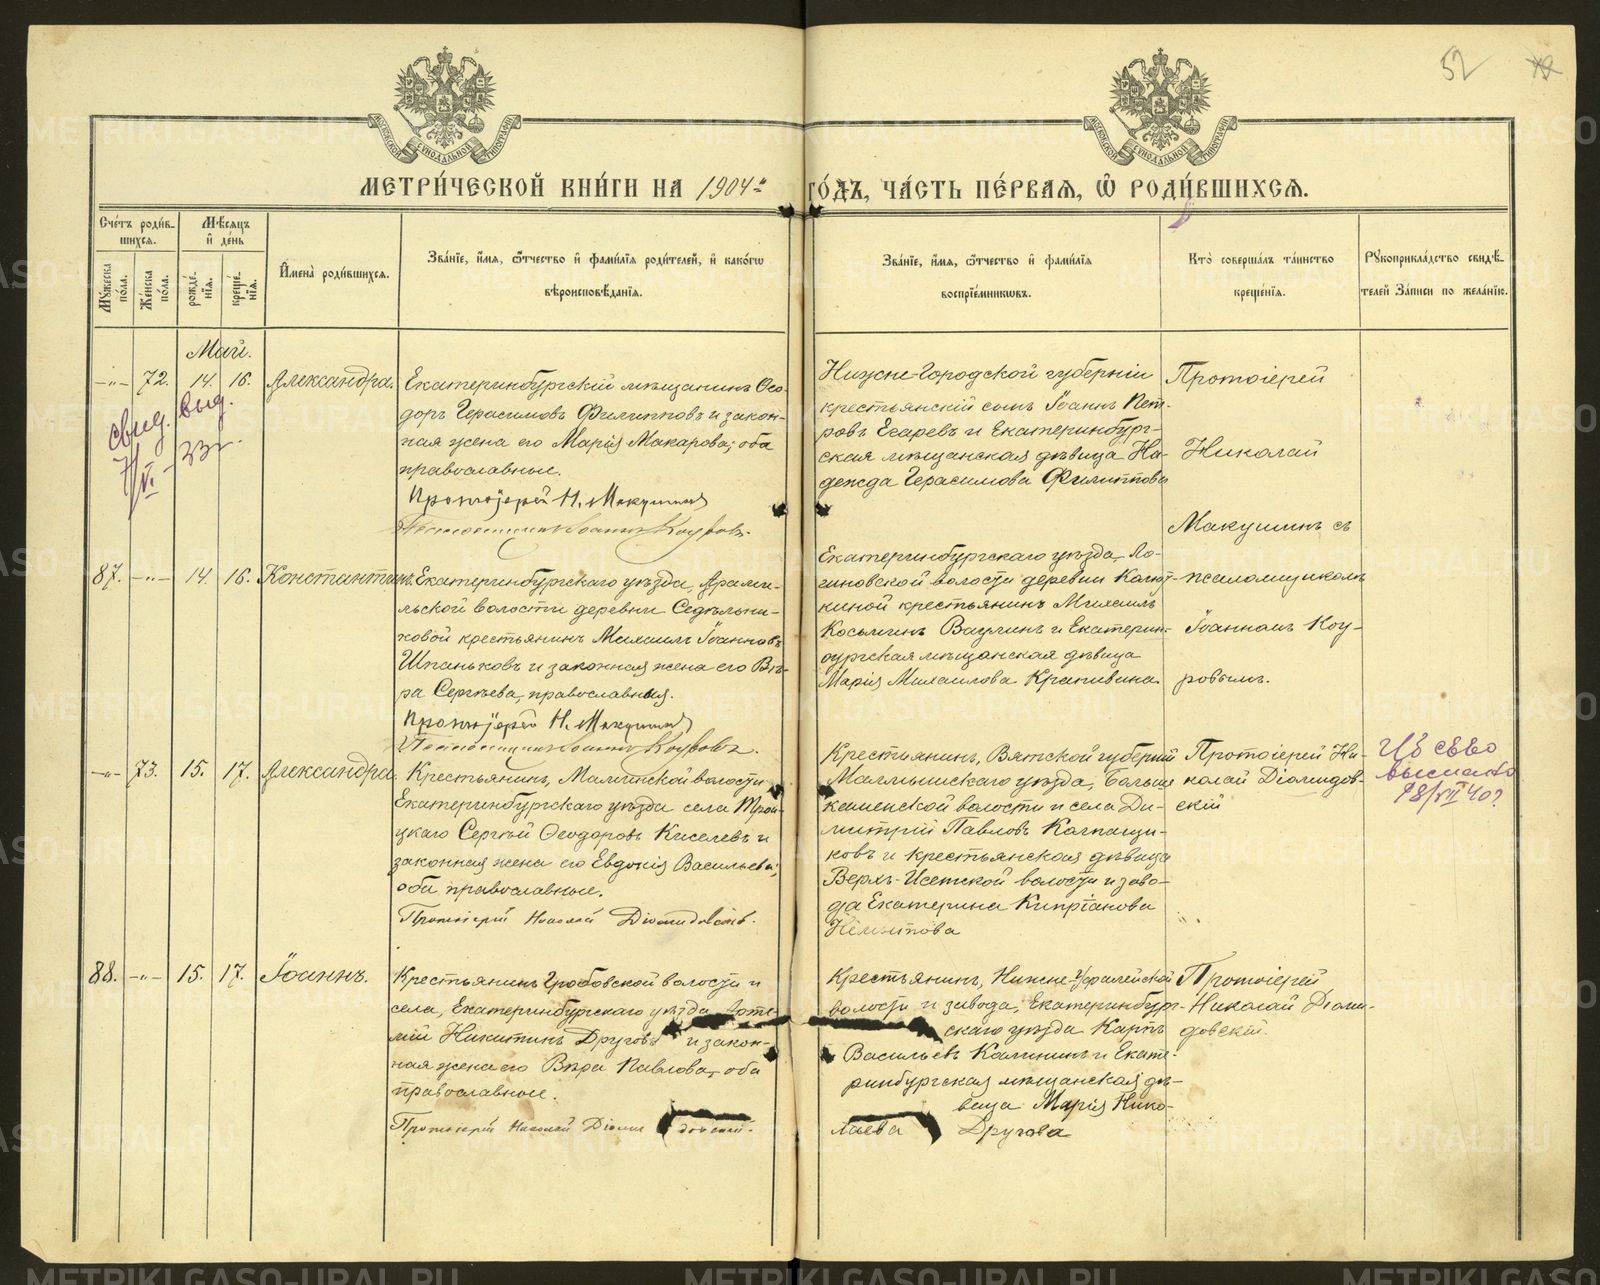 52
МЕТРИ́ЧЕСКОЙ КНИ́ГИ НА 1904 й ГО́ДЪ, ЧА́СТЬ ПЕ́РВАЯ, Ѡ РОДИ́ВШИХСЯ.
МОСКОВСКОЙ СѴНОДАЛЬНОЙ ТИПОГРАФІИ
МОСКОВСКОЙ СѴНОДАЛЬНОЙ ТИПОГРАФІИ
Сче́тъ роди́вшихся.
Му́жеска по́ла.
Же́нска по́ла.
Мѣ́сяцъ и҆ де́нь
рожде́нїя.
креще́нїя.
И҆мена̀ роди́вшихся.
Зва́нїе, и҆́мя, ѻ҆́тчество и҆ фами́лїя роди́телей, и҆ како́гѡ
вѣроисповѣ́данїя.
Зва́нїе, и҆́мя, ѻ҆́тчество и҆ фами́лїя
воспрїе́мникѡвъ.
Кто̀ соверша́лъ та́инство
креще́нїя.
Рꙋкоприкла́дство свидѣ́телей За́писи по жела́нїю.
Май.
-"- 72. 14. 16. Александра.
свид. выд.
7/VI - 33 г.
Екатеринбургскій мѣщанинъ Ѳео-
доръ Герасимовъ Филипповъ и закон-
ная жена его Марія Макарова; оба
православные.
Протоіерей Н. Макушинъ
Псаломщикъ Іоаннъ Коуровъ.
Нижне-Городской губерніи
крестьянскій сынъ Іоаннъ Пет-
ровъ Есаревъ и Екатеринбург-
ская мѣщанская дѣвица На-
дежда Герасимова Филиппова
Протоіерей
Николай
Макушинъ съ
псаломщикомъ
Іоанномъ Коу-
ровымъ.
87. -"- 14. 16. Константинъ.
Екатеринбургскаго уѣзда, Арами-
льской волости деревни Седѣльни-
ковой крестьянинъ Михаилъ Іоанновъ
Шпаньковъ и законная жена его Вѣ-
ра Сергѣева, православныя.
Протоіерей Н. Макушинъ
Псаломщикъ Іоаннъ Коуровъ.
Екатеринбургскаго уѣзда, Ло-
гиновской волости деревни Колют-
киной крестьянинъ Михаилъ
Косьминъ Ваулинъ и Екатерин-
бургская мѣщанская дѣвица
Марія Михаилова Крапивина.
-"- 73. 15. 17. Александра.
Крестьянинъ, Малмской волости
Екатеринбургскаго уѣзда села Трои-
цкаго Сергѣй Ѳеодоровъ Киселевъ и
законная жена его Евдокія Васильева;
оба православные.
Протоіерей Николай Діомидовскій.
Крестьянинъ, Вятской губерніи
Малмышскаго уѣзда, Больше
каменской волости и села Ди-
митрій Павловъ Колпащи-
ковъ и крестьянская дѣвица
Верхъ-Исетской волости и заво-
да Екатерина Кипріанова
Протоіерей Ни-
колай Діомидов-
скій
выслано
18/VII 40 г
88. -"- 15. 17. Іоаннъ.
Крестьянинъ Гробовской волости и
села, Екатеринбургскаго уѣзда Арте-
мій Никитинъ Друговъ и закон-
ная жена его Вѣра Павлова, оба
православные.
Протоіерей Николай Діоми довскій.
Крестьянинъ, Нижне-Уфалейской
волости и завода, Екатеринбург-
скаго уѣзда Карпъ
Васильевъ Калининъ и Екате-
ринбургская мѣщанская дѣ-
вица Марія Нико-
лаева Другова
Протоіерей
Николай Діоми-
довскій.
METRIKI.GASO-URAL.RU